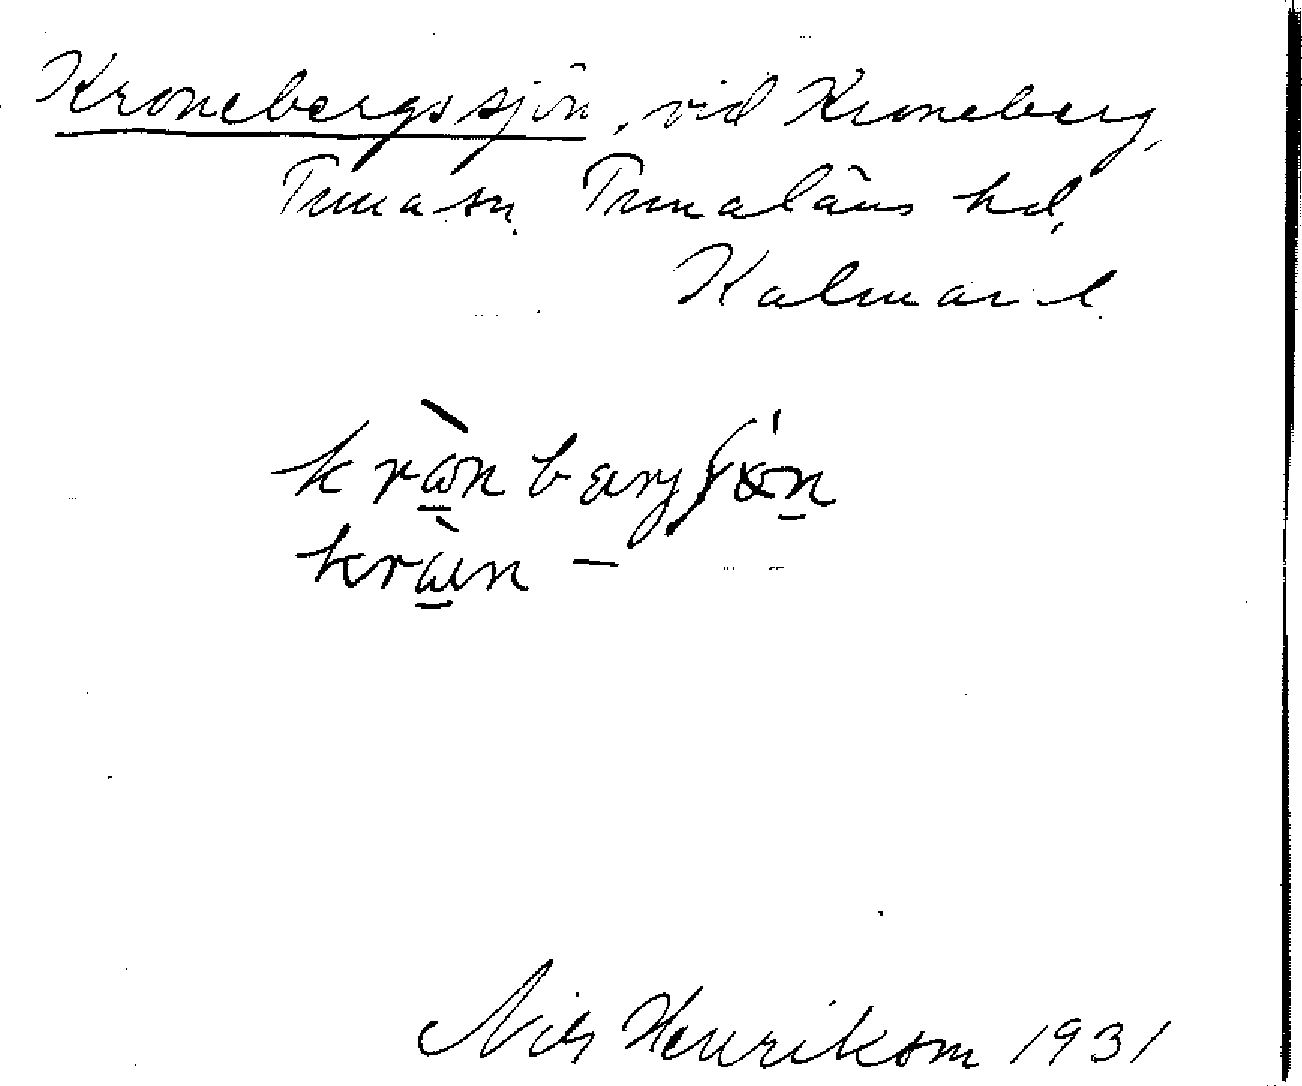 Kronebergssjön, vid Kroneberg,
Tuna sn, Tunaläns hd,
Kalmar l.
krὼnbærjʃön
krὼen –
Nils Henrikson 1931